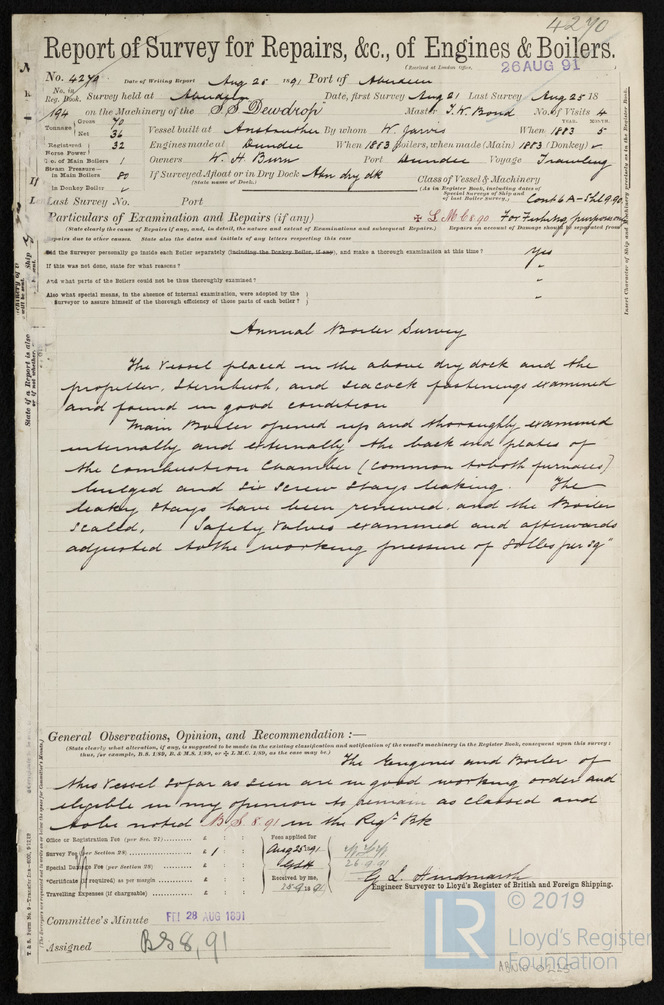 4270
Report of Survey for Repairs, &c., of Engines & Boilers.
(Received at London Office,
26 AUG 91
No. 4270 Date of Writing Report Aug 25 1891 Port of Aberdeen
No. in Reg. Book. Survey held at Aberdeen Date, first Survey Aug 21 Last Survey Aug 25 18
194 on the Machinery of the S.S. "Dewdrop" Master J. W. Bond No. of Visits 4
Tonnage Gross 70 Net 36 Vessel built at Anstruther By whom W. Jarvis When 1883 YEAR. MONTH. 5
Registered Horse Power 32 Engines made at Dundee When 1883 Boilers, when made (Main) 1883 (Donkey) ✓
No. of Main Boilers 1 Owners W. H. Burn Port Dundee Voyage Trawling
Steam Pressure— in Main Boilers 80 If Surveyed Afloat or in Dry Dock Abn dry dk
(State name of Dock.)
Class of Vessel & Machinery
(As in Register Book, including dates of Special Surveys of Ship and of last Boiler Survey.)
in Donkey Boiler ✓
Last Survey No. Port
Particulars of Examination and Repairs (if any) ✠ LMC 8 90 For Fishing purposes only
(State clearly the cause of Repairs if any, and, in detail, the nature and extent of Examinations and subsequent Repairs.) Repairs on account of Damage should be separated from
Repairs due to other causes. State also the dates and initials of any letters respecting this case
Did the Surveyor personally go inside each Boiler separately (including the Donkey Boiler, if any), and make a thorough examination at this time? Yes
If this was not done, state for what reasons? "
And what parts of the Boilers could not be thus thoroughly examined? "
Also what special means, in the absence of internal examination, were adopted by the
Surveyor to assure himself of the thorough efficiency of those parts of each boiler? "
Annual Boiler Survey
The Vessel placed in the above dry dock and the
propeller, Sternbush, and Seacock fastenings examined
and found in good condition
Main Boiler opened up and thoroughly examined
internally and externally the back end plates of
the Combustion Chamber (common to both furnaces)
bulged and six screw stays leaking. The
leaky stays have been renewed and the Boiler
scaled, Safety Valves examined and afterwards
adjusted to the working pressure of 80 lbs per sq"
General Observations, Opinion, and Recommendation :—
(State clearly what alteration, if any, is suggested to be made in the existing classification and notification of the vessel's machinery in the Register Book, consequent upon this survey:
thus, for example, B.S. 1/89, B.& M.S. 1/89, or ✠ L.M.C. 1/89, as the case may be.)
The Engines and Boiler of
this Vessel so far as seen are in good working order and
eligible in my opinion to remain as classed and
to be noted B S 8. 91 in the Regr Bk
Office or Registration Fee (per Sec. 27) £ : :
Survey Fee (per Section 28) £ 1 : :
Special Damage Fee (per Section 28) £ : :
*Certificate (if required) as per margin £ : :
Travelling Expenses (if chargeable) £ : :
Fees applied for
Aug 25 1891
Received by me,
25.9.1891
26 9 91
G. L. Hindmarsh
Engineer Surveyor to Lloyd's Register of British and Foreign Shipping.
Committee's Minute FRI 28 AUG 1891
Assigned BS 8, 91
© 2019
LR
Lloyd's Register
Foundation